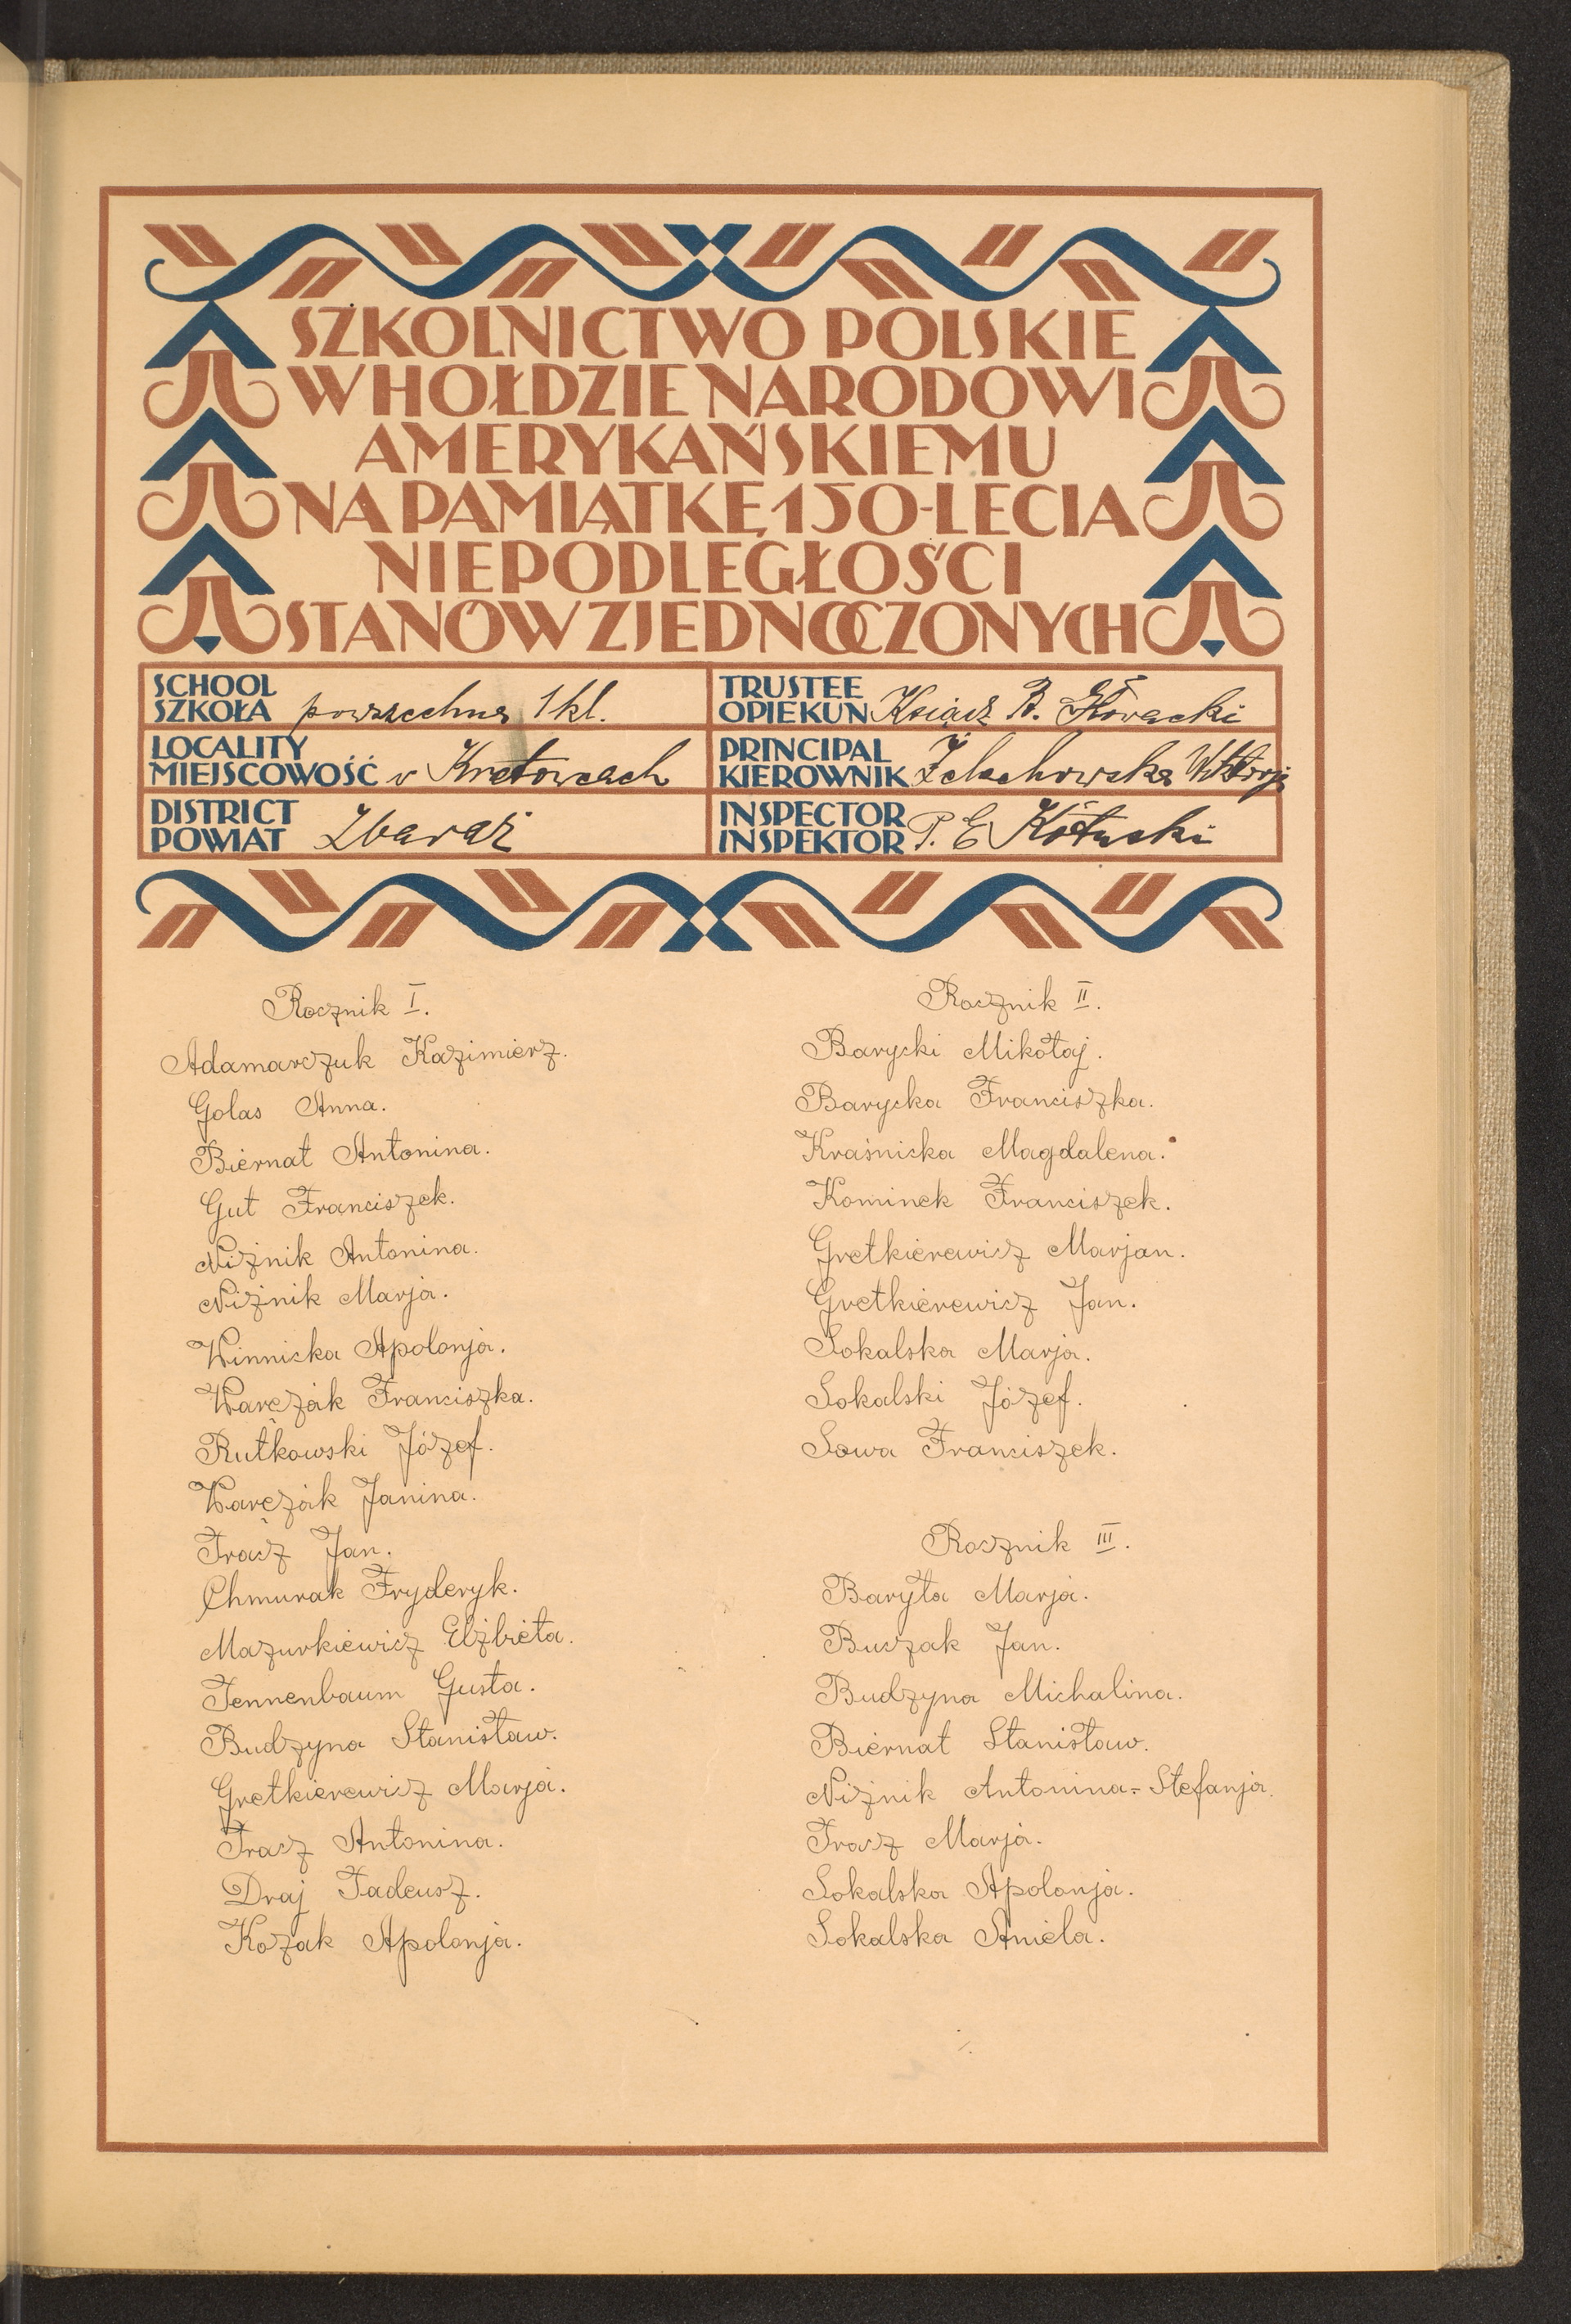 SZKOLNICTWO POLSKIE
W HOŁDZIE NARODOWI
AMERYKAŃSKIEMU
NA PAMIĄTKĘ 150-LECIA
NIEPODLEGŁOŚCI
STANÓW ZJEDNOCZONYCH
SCHOOL
SZKOŁA powszechna 1 kl.
TRUSTEE
OPIEKUN Ksiądz B. Głowacki
LOCALITY
MIEJSCOWOŚĆ w Kretowcach
PRINCIPAL
KIEROWNIK Żelachowska Wiktorja
DISTRICT
POWIAT Zbaraż
INSPECTOR
INSPEKTOR P. E.
Rocznik I.
Adamarczuk Kazimierz.
Golas Anna.
Biernat Antonina.
Gut Franciszek.
Niżnik Antonina.
Niżnik Marja.
Winnicka Apolonja.
Warczak Franciszka.
Rutkowski Józef.
Warczak Janina.
Tracz Jan.
Chmurak Fryderyk.
Mazurkiewicz Elżbieta.
Tennenbaum Gusta.
Budzyna Stanisław.
Gretkierewicz Marja.
Tracz Antonina.
Draj Tadeusz.
Kozak Apolonja.
Rocznik II.
Barycki Mikołaj.
Barycka Franciszka.
Kraśnicka Magdalena.
Kominek Franciszek.
Gretkierewicz Marjan.
Gretkierewicz Jan.
Sokalska Marja.
Sokalski Józef.
Sowa Franciszek.
Rocznik III.
Baryła Marja.
Buczak Jan.
Budzyna Michalina.
Biernat Stanisław.
Niżnik Antonina-Stefanja.
Tracz Marja.
Sokalska Apolonja.
Sokalska Aniela.